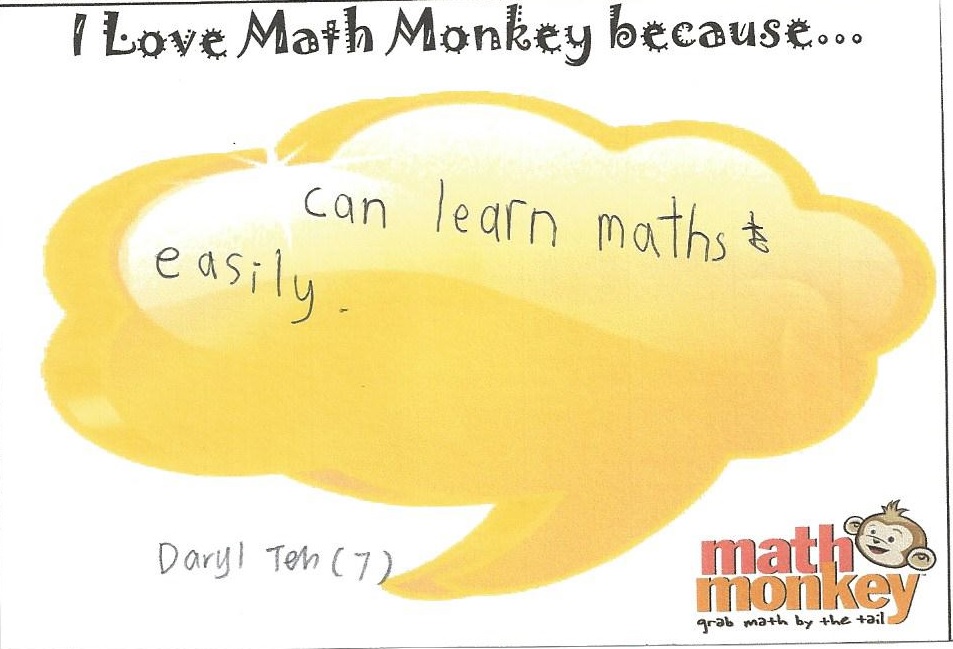 I Love Math Monkey because...
can learn maths
easily.
Daryl Teh (7)
math
monkey™
grab math by the tail